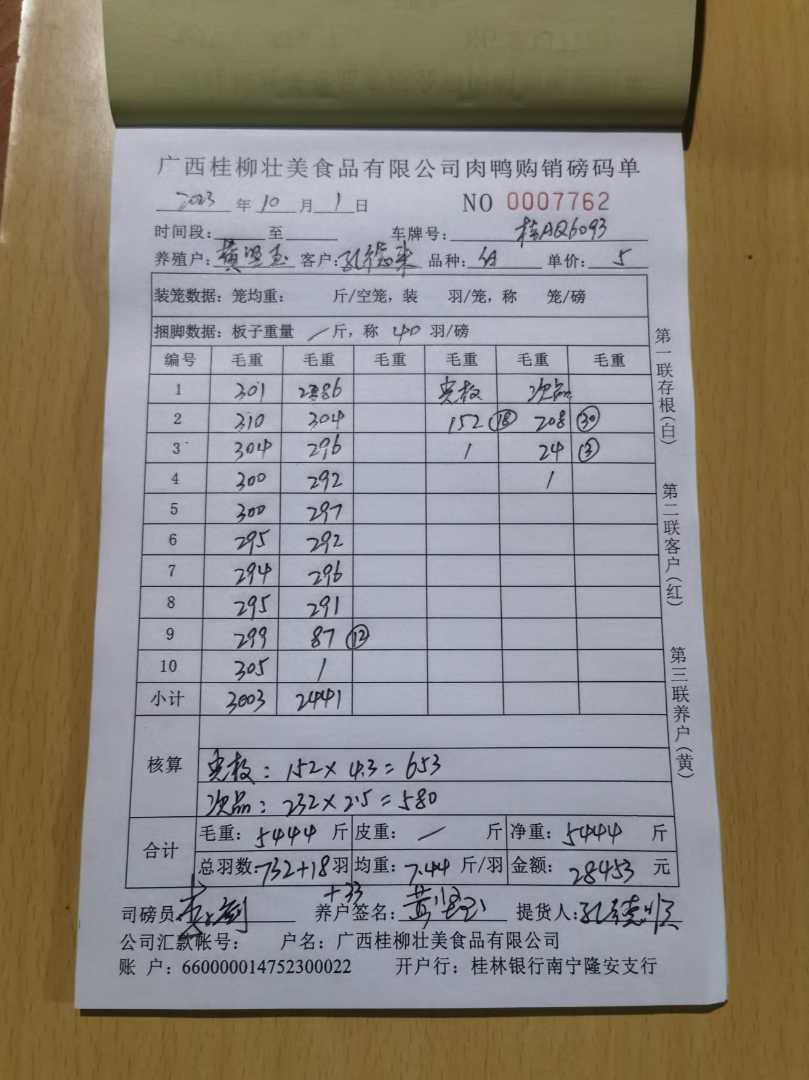 广西桂柳壮美食品有限公司肉鸭购销磅码单
2023 年 10 月 1 日 NO 0007762
时间段: 至 车牌号: 桂AQ6093
养殖户: 黄坚玉 客户: 孔德 品种: 单价: 5
装笼数据: 笼均重: 斤/空笼, 装 羽/笼, 称 笼/磅
捆脚数据: 板子重量 / 斤, 称 40 羽/磅
编号 毛重 毛重 毛重 毛重 毛重 毛重
1 301 286 次品
2 310 304 152 ⑱ 208 ㉚
3 304 296 / 24 ③
4 300 292 /
5 300 297
6 295 292
7 294 296
8 295 291
9 299 87 ⑫
10 305 /
小计 3003 2441
核算
: 152×4.3=653
次品: 232×2.5=580
合计 毛重: 5444 斤 皮重: / 斤 净重: 5444 斤
总羽数: 732+18 羽 均重: 7.44 斤/羽 金额: 28453 元
+33
司磅员: 养户签名: 黄坚玉 提货人: 孔德顺
公司汇款帐号: 户名: 广西桂柳壮美食品有限公司
账 户: 660000014752300022 开户行: 桂林银行南宁隆安支行
第一联存根(白) 第二联客户(红) 第三联养户(黄)